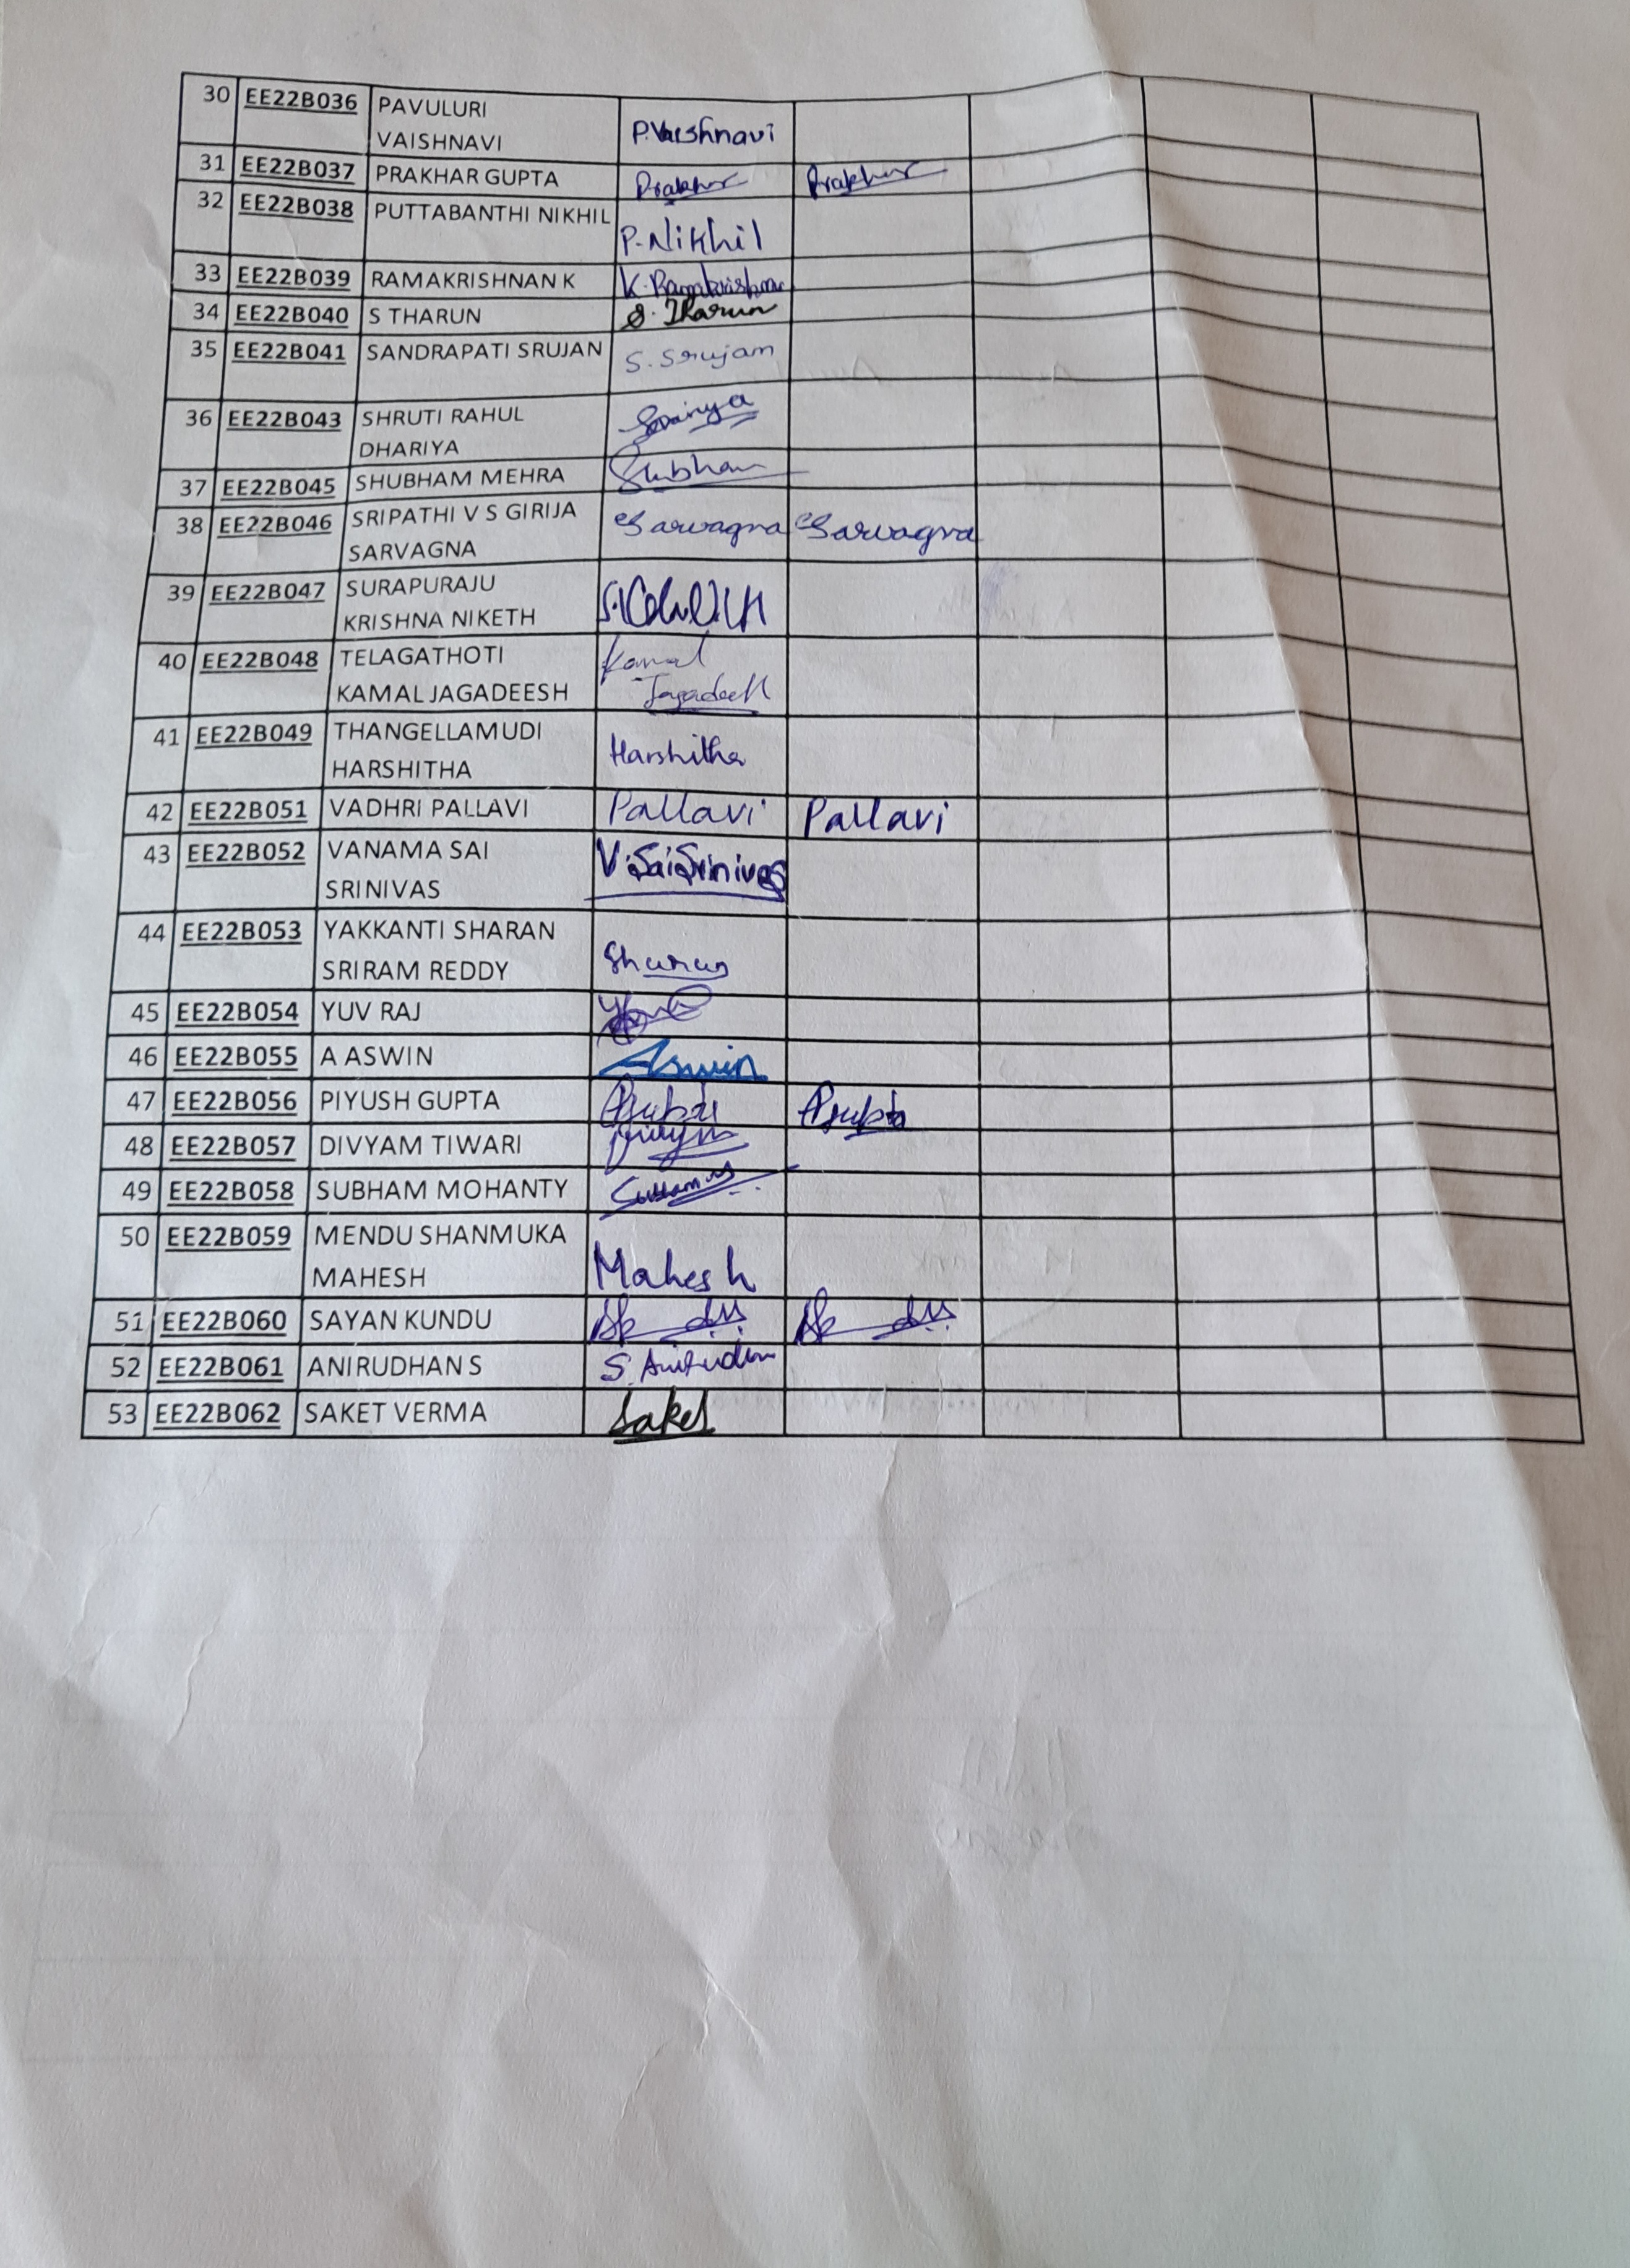 30 EE22B036 PAVULURI P.Vaishnavi
VAISHNAVI
31 EE22B037 PRAKHAR GUPTA Prakhar Prakhar
32 EE22B038 PUTTABANTHI NIKHIL P.Nikhil
33 EE22B039 RAMAKRISHNAN K K.Ramakrishnan
34 EE22B040 S THARUN S.Tharun
35 EE22B041 SANDRAPATI SRUJAN S.Srujan
36 EE22B043 SHRUTI RAHUL
DHARIYA
37 EE22B045 SHUBHAM MEHRA Shubham
38 EE22B046 SRIPATHI V S GIRIJA Sarvagna Sarvagna
SARVAGNA
39 EE22B047 SURAPURAJU
KRISHNA NIKETH
40 EE22B048 TELAGATHOTI Kamal
KAMAL JAGADEESH Jagadeesh
41 EE22B049 THANGELLAMUDI Harshitha
HARSHITHA
42 EE22B051 VADHRI PALLAVI Pallavi Pallavi
43 EE22B052 VANAMA SAI V.SaiSrinivas
SRINIVAS
44 EE22B053 YAKKANTI SHARAN Sharan
SRIRAM REDDY
45 EE22B054 YUV RAJ
46 EE22B055 A ASWIN Aswin
47 EE22B056 PIYUSH GUPTA PGupta PGupta
48 EE22B057 DIVYAM TIWARI Divyam
49 EE22B058 SUBHAM MOHANTY
50 EE22B059 MENDU SHANMUKA Mahesh
MAHESH
51 EE22B060 SAYAN KUNDU
52 EE22B061 ANIRUDHAN S S.Anirudhan
53 EE22B062 SAKET VERMA Saket